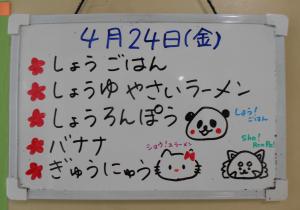 4月24日(金)
しょうごはん
しょうゆやさいラーメン
しょうろんぽう
しょう!
ごはん
バナナ
ショウ!ユラーメン
Sho!
RonPo!
ぎゅうにゅう